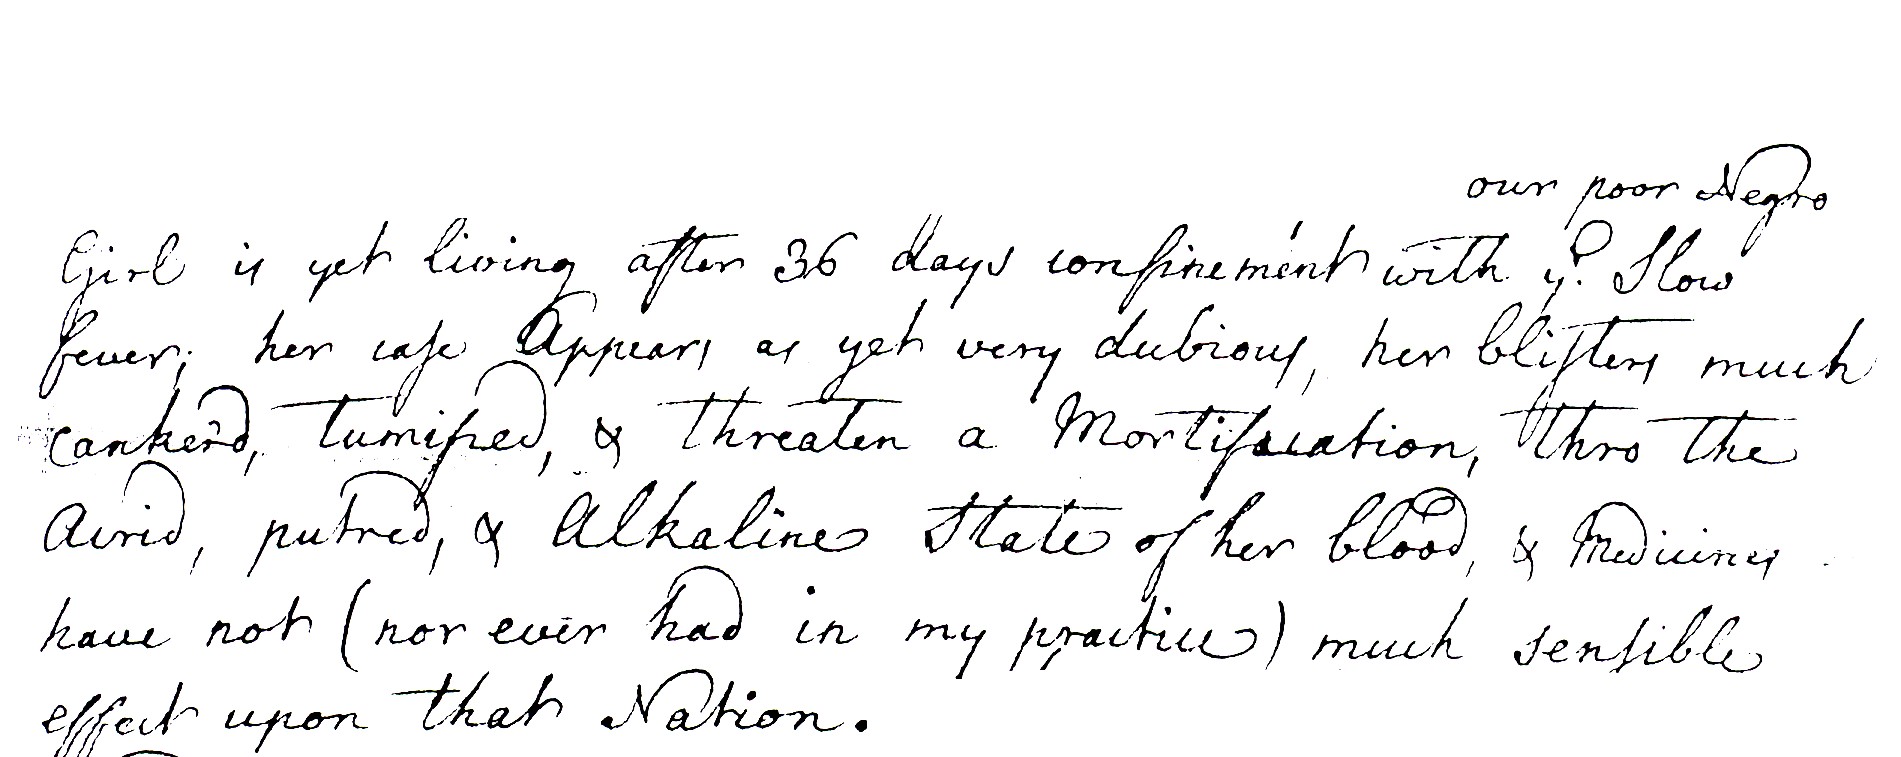 our poor Negro
Girl is yet living after 36 days confinement with ye. Slow
fever; her case Appears as yet very dubious, her blisters much
cankerd, tumified, & threaten a Mortification, thro the
Acrid, putred, & Alkaline State of her blood, & Medicines
have not (nor ever had in my practice) much sensible
effect upon that Nation.